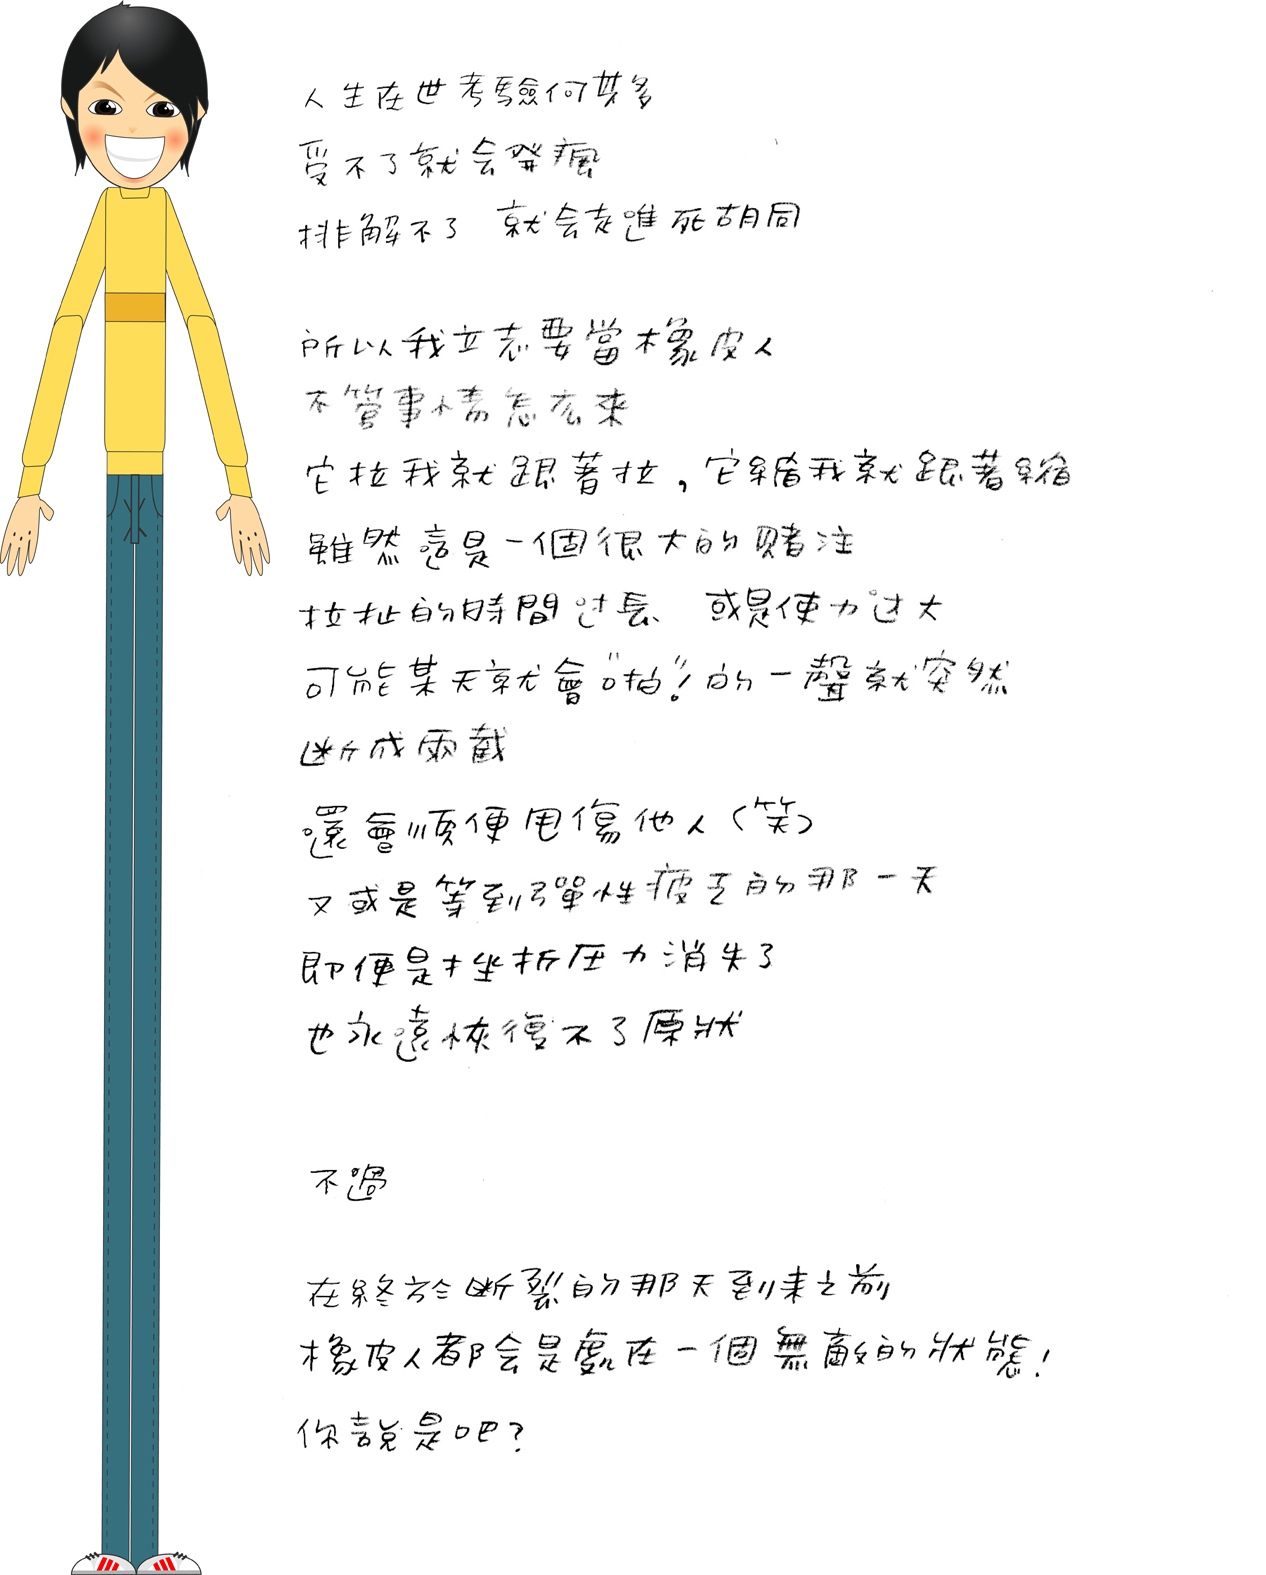 人生在世考驗何其多
受不了就会發瘋
排解不了 就会走進死胡同
所以我立志要當橡皮人
不管事情怎么來
它拉我就跟著拉，它縮我就跟著縮
雖然這是一個很大的賭注
拉扯的時間过長、或是使力过大
可能某天就會"啪"！的一聲就突然
断成兩截
還會順便甩傷他人（笑）
又或是等到彈性疲乏的那一天
即便是挫折压力消失了
也永遠恢復不了原狀
不過
在終於断裂的那天到来之前
橡皮人都会是處在一個無敵的狀態！
你說是吧？